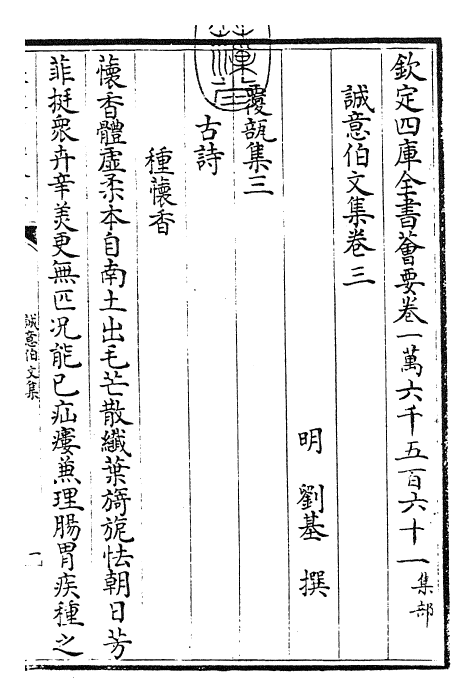 欽定四庫全書薈要卷一萬六千五百六十一集部
誠意伯文集卷三
明 劉基 撰
覆瓿集三
古詩
種懷香
懷香體虛柔本自南土出毛芒散纖葉旖旎怯朝日芳
菲挺衆卉辛美更無匹况能已疝瘻兼理腸胃疾種之
誠意伯文集
一